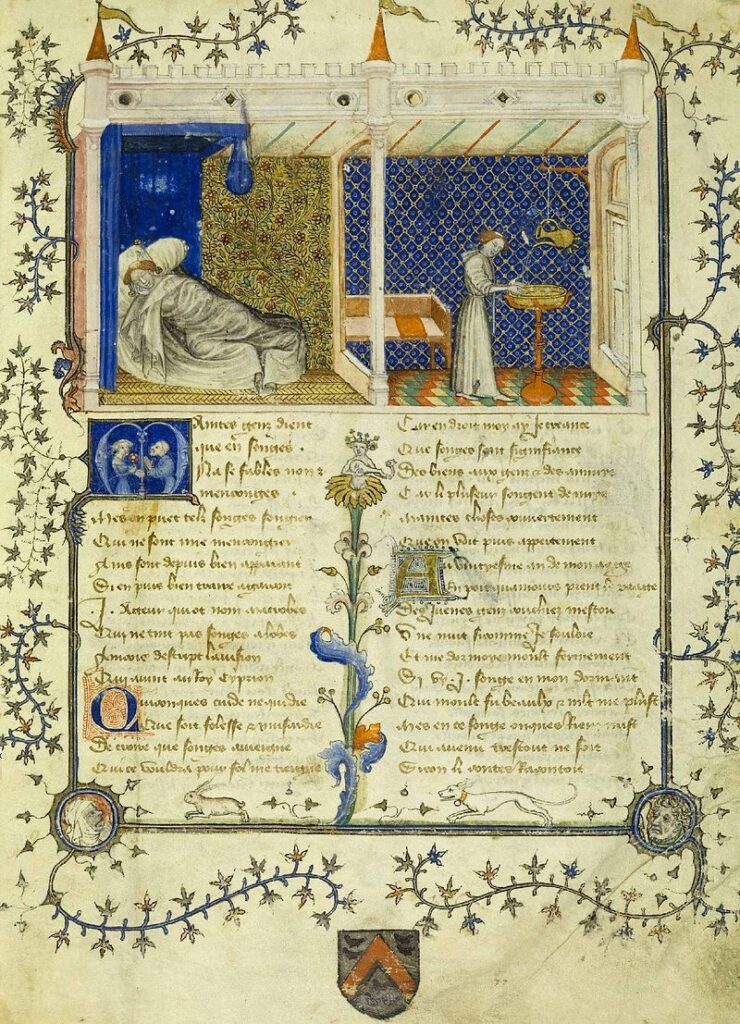 Maintes genz dient
que en songes
Na se fables non &
menconges
Mes on puet telz songes songier
Qui ne sont mie mencongier
Ains sont depuis bien apparant
Si en puis bien traire a garant
.I. Acteur qui ot nom macrobes
Qui ne tint pas songes a lobes
Aincois descript la vision
Qui avint au roy Cyprion
Quiconques cuide ne qui die
Que soit folesse & musardie
De croire que songes aviengne
Qui ce vouldra pour fol me tiengne
Car en droit moy ay je creance
Que songes soit signifiance
Des biens aux genz & des anuys
Car li pluseur songent de nuys
Maintes choses couvertement
Que en voit puis appertement
Au vintiesme an de mon aage
Au point quamours prent le paage
Des juenes genz couchiez mestoie
Une nuit si comme je souloie
Et me dormoye moult forment
Si vy .I. songe en mon dormant
Qui moult fu beaulx & mlt me plust
Mes en ce songe onques riens
Qui avenu trestout ne soit
Si com li contes racontoit